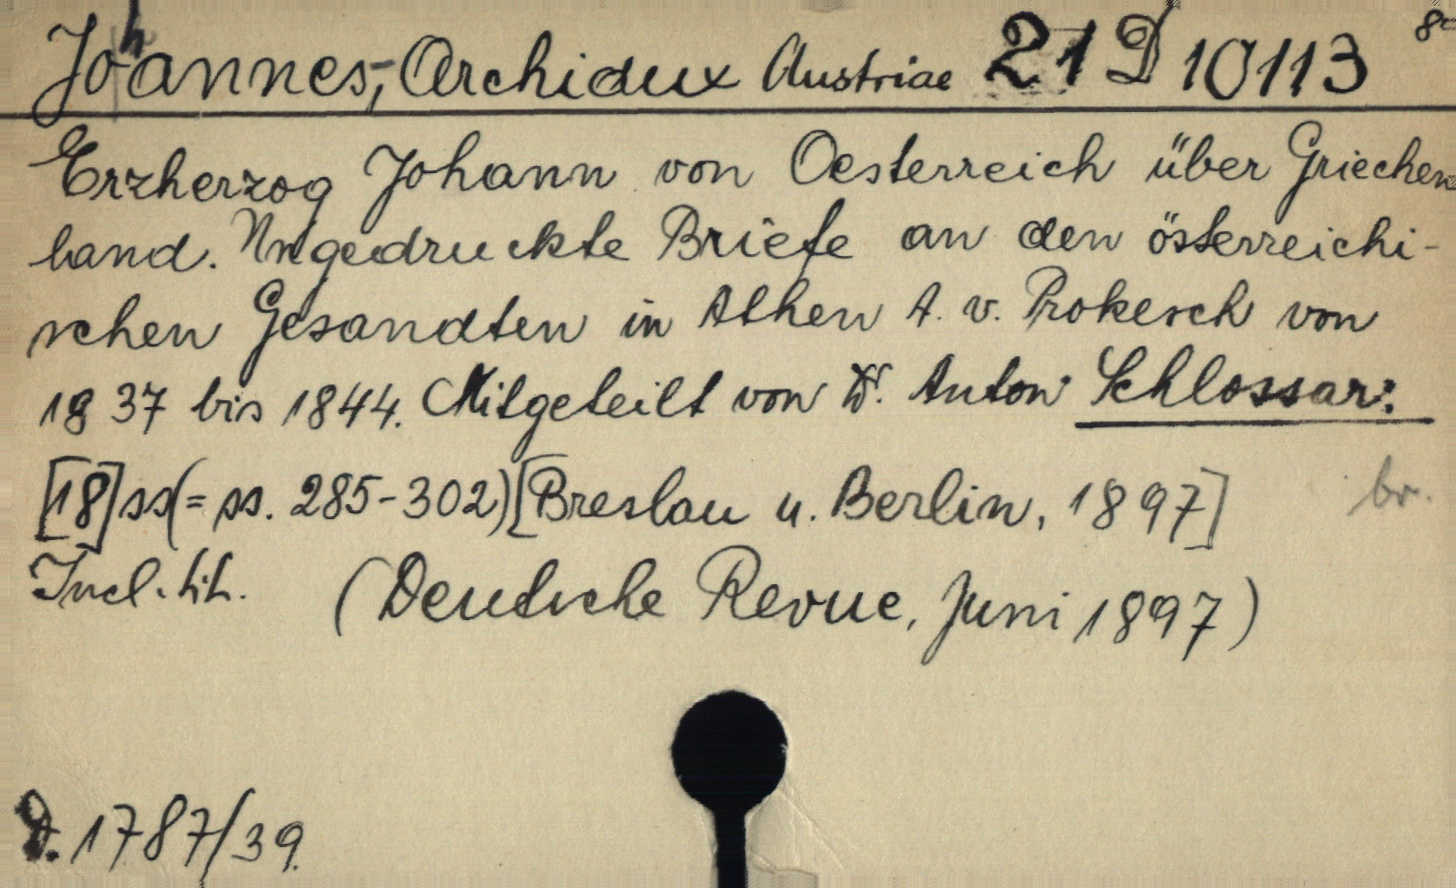 Johannes, Archidux Austriae 21 D 10113 8°
Erzherzog Johann von Oesterreich über Griechen
land. Ungedruckte Briefe an den österreichi-
schen Gesandten in Athen A. v. Prokesch von
1837 bis 1844. Mitgeteilt von Dr. Anton Schlossar.
[18] ss (= ss. 285-302) [Breslau u. Berlin, 1897] br.
Incl. tit. (Deutsche Revue, Juni 1897)
D. 1787/39.